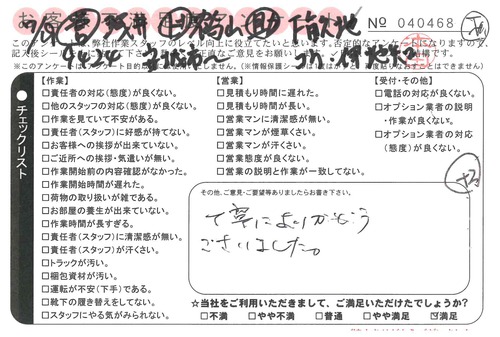 № 040468
このアンケートは、弊社作業スタッフのレベル向上に役立てたいと思います。否定的なアンケートになりますので
チェックリスト
【作業】
□責任者の対応(態度)が良くない。
□他のスタッフの対応(態度)が良くない。
□作業を見ていて不安がある。
□責任者(スタッフ)に好感が持てない。
□お客様への挨拶が出来ていない。
□ご近所への挨拶・気遣いが無い。
□作業開始前の内容確認がなかった。
□作業開始時間が遅れた。
□荷物の取り扱いが雑である。
□お部屋の養生が出来ていない。
□作業時間が長すぎる。
□責任者(スタッフ)に清潔感が無い。
□責任者(スタッフ)が汗くさい。
□トラックが汚い。
□梱包資材が汚い。
□運転が不安(下手)である。
□靴下の履き替えをしてない。
□スタッフにやる気がみられない。
【営業】
□見積もり時間に遅れた。
□見積もり時間が長い。
□営業マンに清潔感が無い。
□営業マンが煙草くさい。
□営業マンが汗くさい。
□営業態度が良くない。
□営業の説明と作業が一致してない。
【受付・その他】
□電話の対応が良くない。
□オプション業者の説明
・作業が良くない。
□オプション業者の対応
(態度)が良くない。
その他、ご意見・ご要望等ありましたらお書き下さい。
丁寧にありがとう
ございました。
☆当社をご利用いただきまして、ご満足いただけてでしょうか?
□不満 □やや不満 □普通 □やや満足 ☑満足